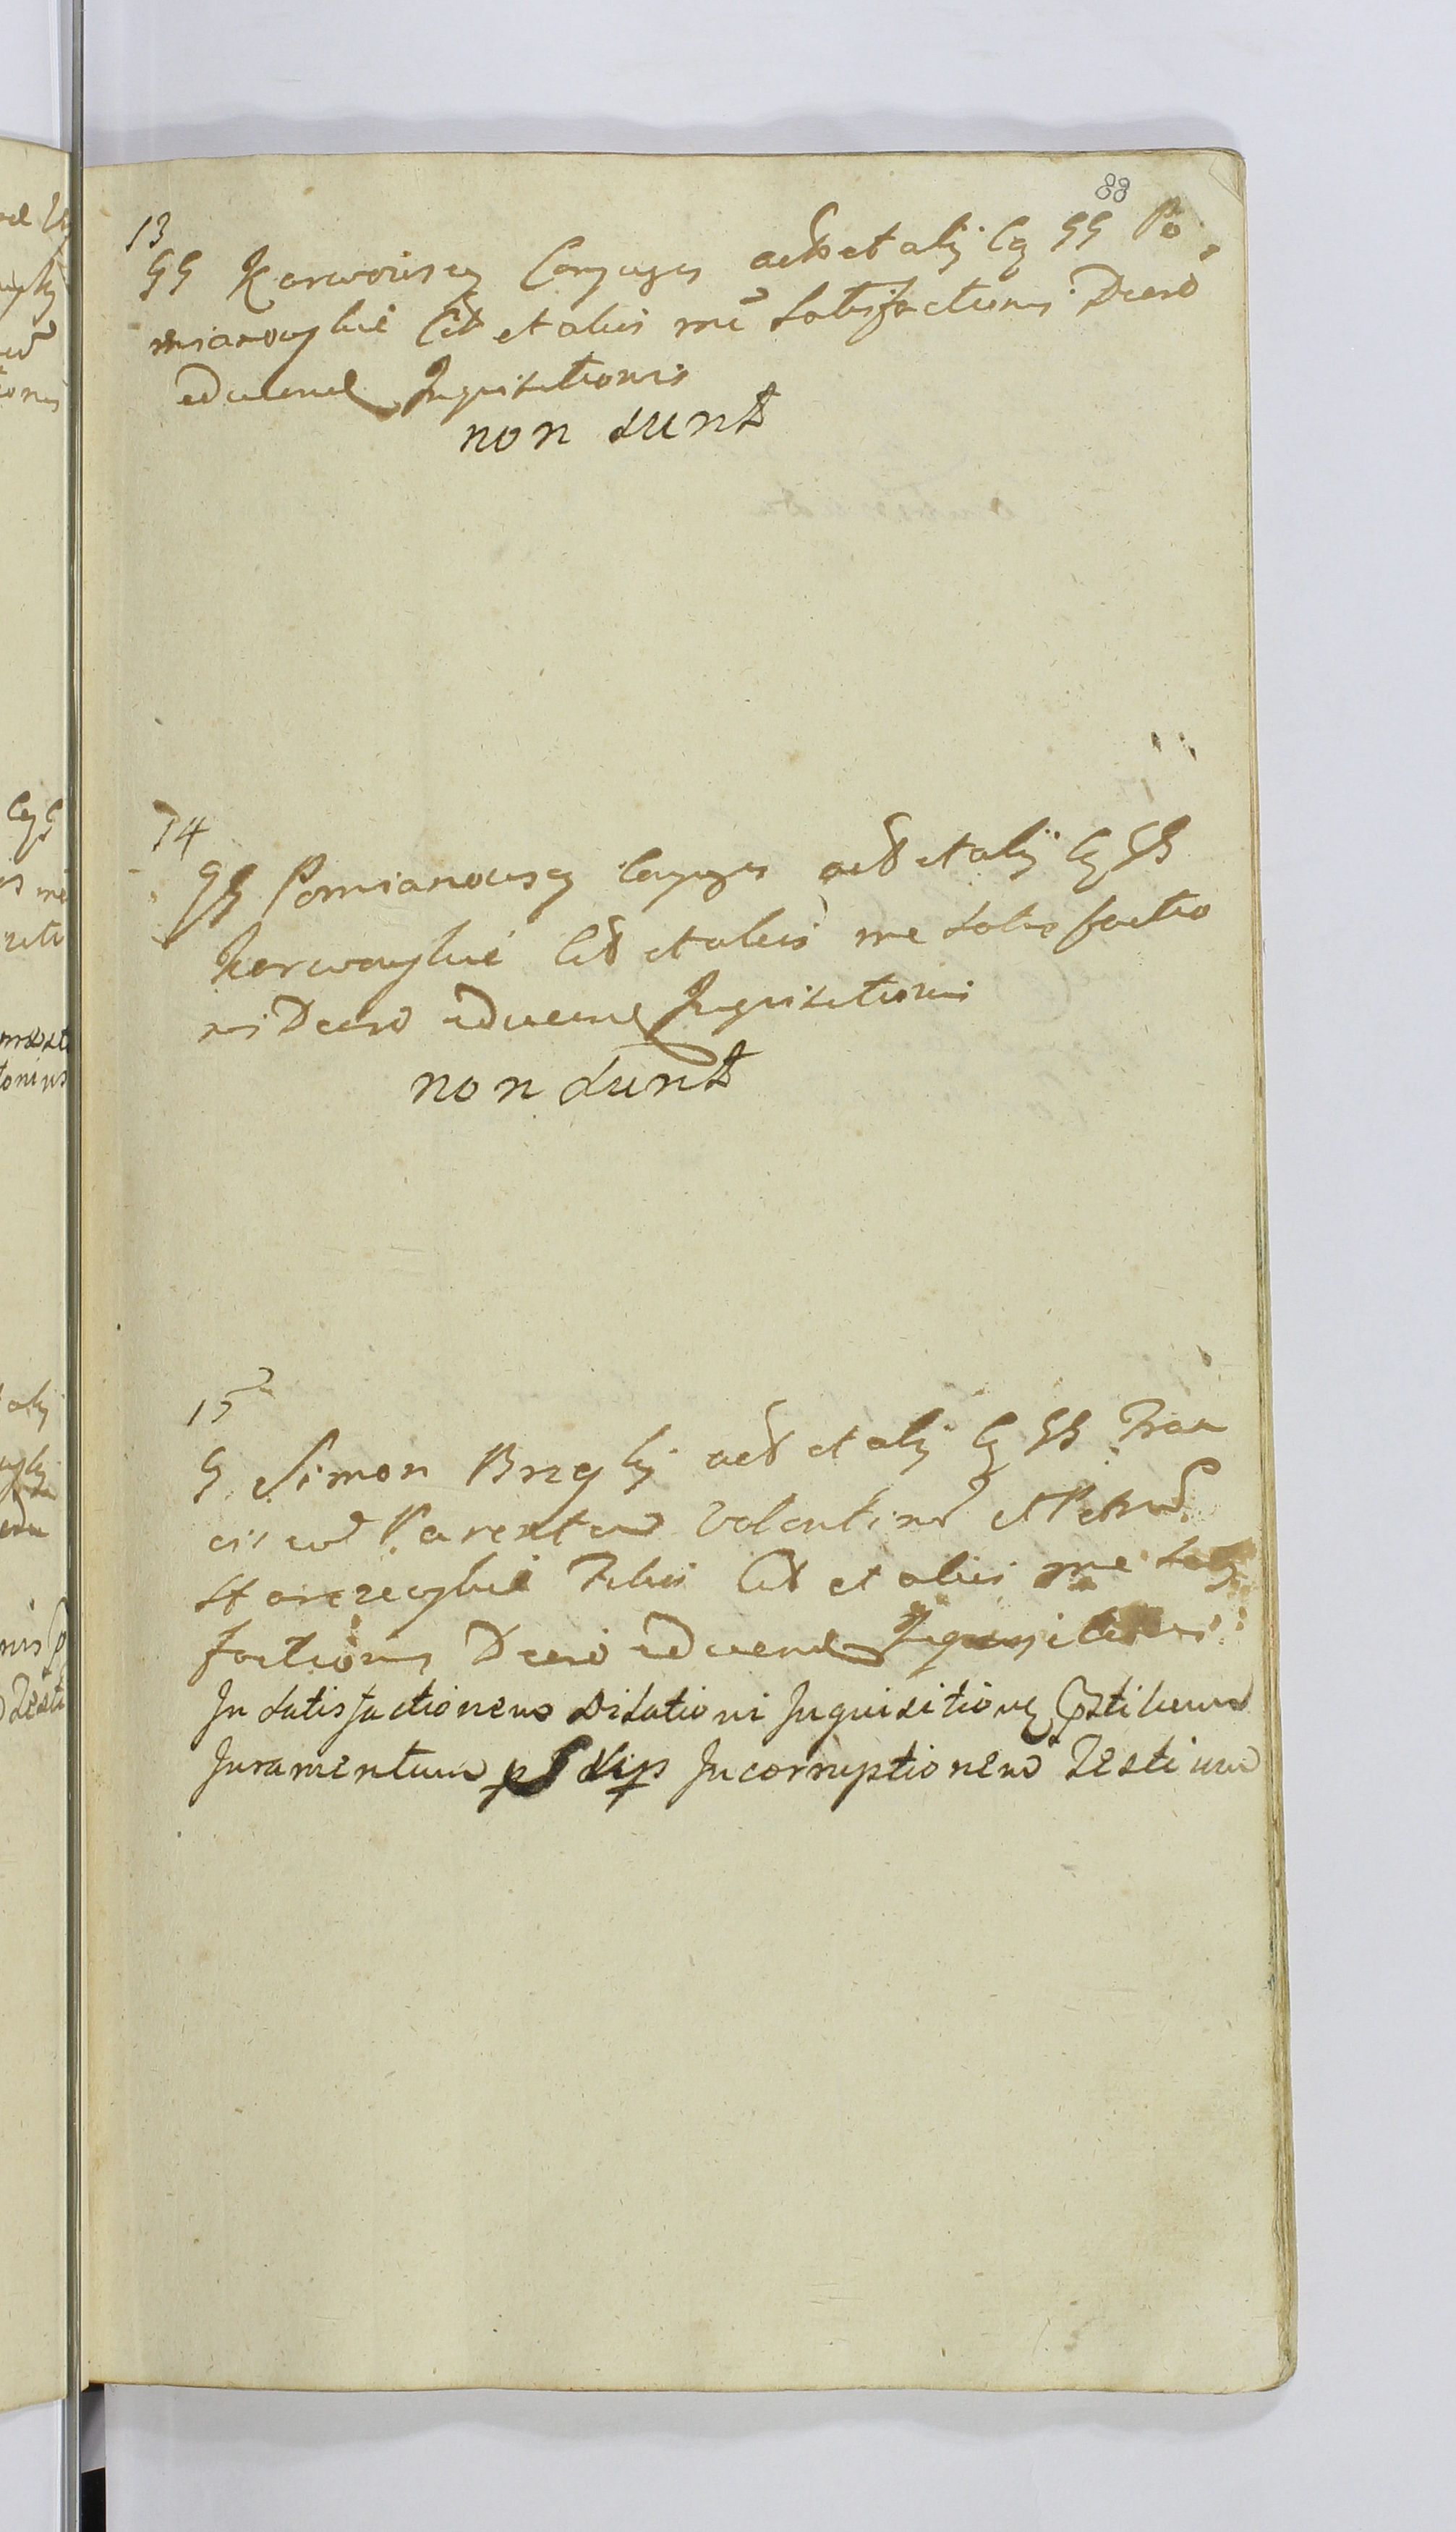 88
13
GG Karwowscy Conjuges act et alij Cq GG Po
mianowskie Cit et aliis me Satisfactionis Decro
educend Inquisitionis
non sunt
14
GG Pomianowscy Conjuges act et alij Cq GG
Karwowskie Cit et aliis me Satisfactio
nis Decro educend Inquisitionis
non sunt
15
G Simon Brzeski act et alij Cq GG Fran
ciscum Parentem Valentinum et Petrum
Filios Cit et aliis me Satis
factionis Decro educend Inquisitionis
In Satisfactionem Dilationi Inquisitionis
Juramentum Incorruptionem Testium